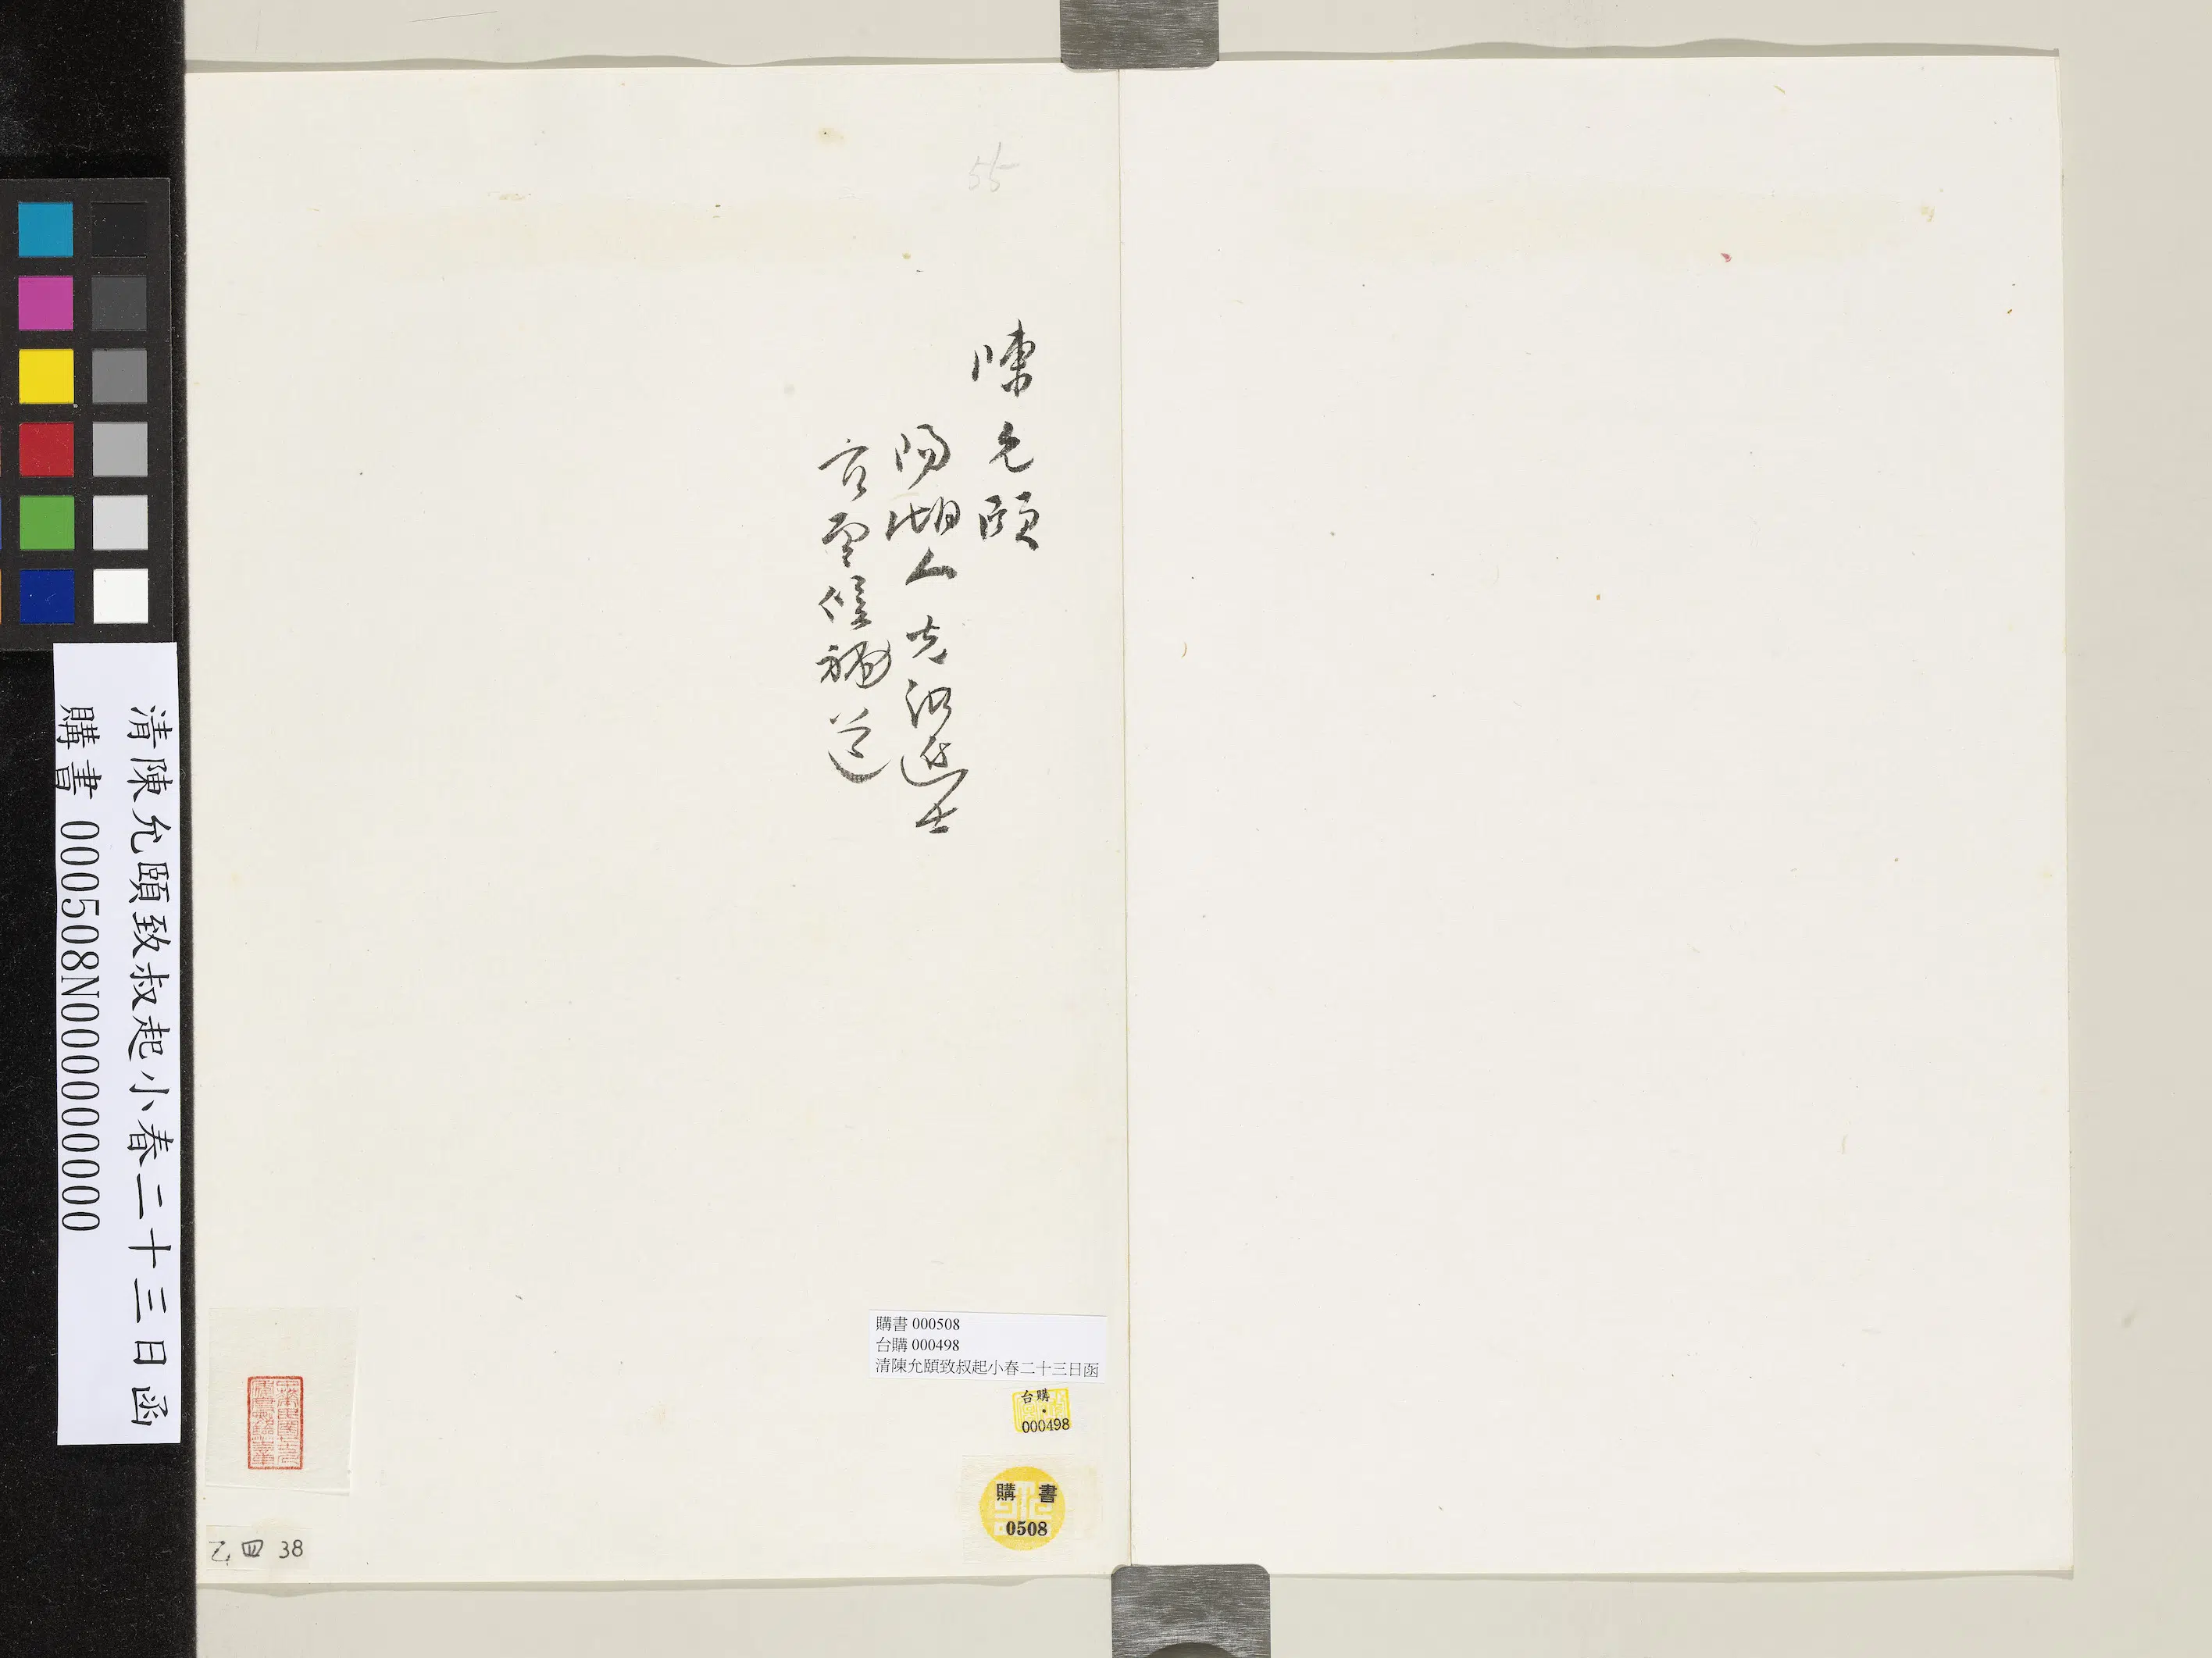 55
陳允頤
陽湖人光緒進士
官候補道
清陳允頤致叔起小春二十三日函
購書 000508N000000000
購書 000508
台購 000498
清陳允頤致叔起小春二十三日函
台購
000498
購 書
0508
乙 四 38